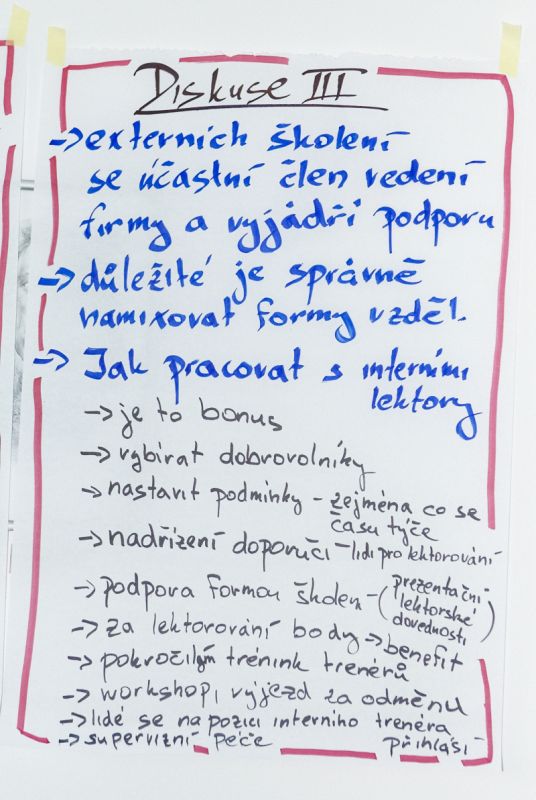 Diskuse III
-> externích školení
se účastní člen vedení
firmy a vyjádří podporu
-> důležité je správně
namixovat formy vzděl.
-> Jak pracovat s interními
lektory
-> je to bonus
-> vybírat dobrovolníky
-> nastavit podmínky - zejména co se
času týče
-> nadřízení doporučí - lidi pro lektorování
-> podpora formou školení - (prezentační
lektorské
dovednosti)
-> za lektorování body -> benefit
-> pokročilým trénink trenérů
-> workshopi, výjezd za odměnu
-> lidé se na pozici interního trenéra
přihlásí
-> supervizní péče